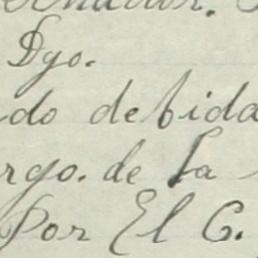 Dgo.
do debida
rgo. de la
Por El C.